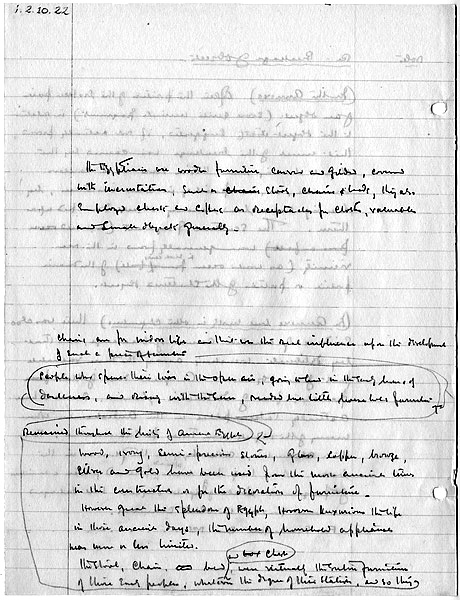 1.2.10.22
The Egyptians use wooden furniture carved and gilded, covered
with incrustations, such as chairs stools, chairs & beds, they also
employed chests and coffers as receptacles for cloths, valuables
and small objects generally.
Chairs are for indoor life and this was the real influence upon the development
of such a piece of furniture
People who spend their lives in the open air, going to bed in the early hours of
darkness, and rising with the Sun, needed but little household furniture
Remained throughout the history of ancient Egypt
Wood, ivory, semi-precious stones, glass, copper, bronze,
silver and gold have been used from the more ancient times
in the construction or for the decoration of furniture.
However great the splendour of Egypt, However luxurious the life
in those ancient days, the number of household appliances
was more or less limited.
or box chest
The stool, chair, bed, were virtually the entire furniture
of those early peoples, whatever the degree of their station, and so they